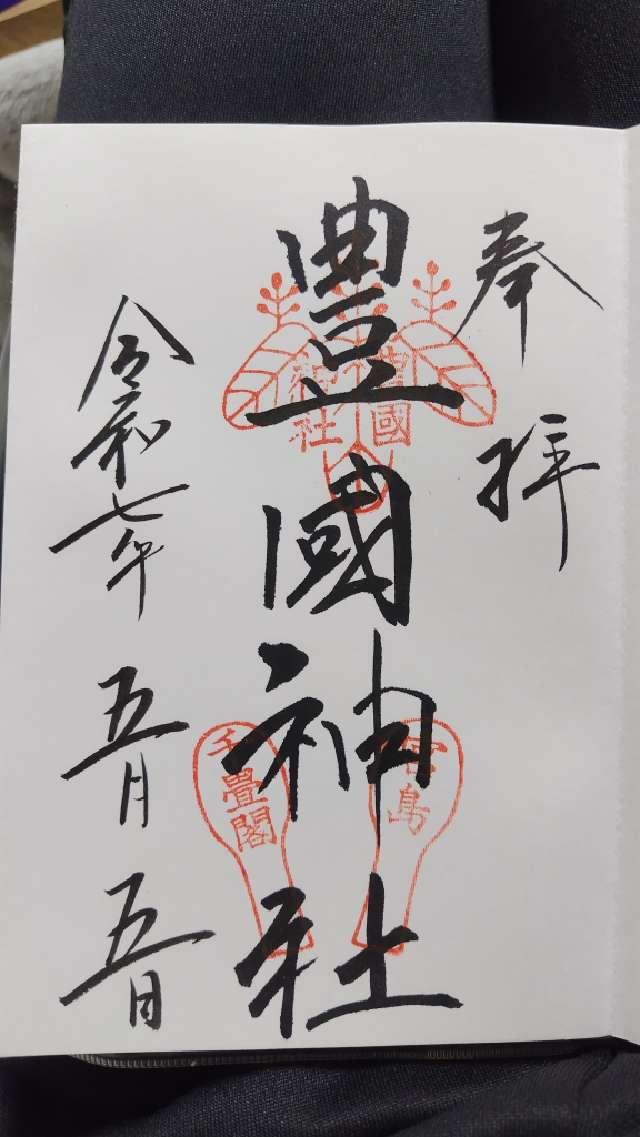 奉拝
豊國神社
豊國
神社
宮島
千畳閣
令和七年五月五日